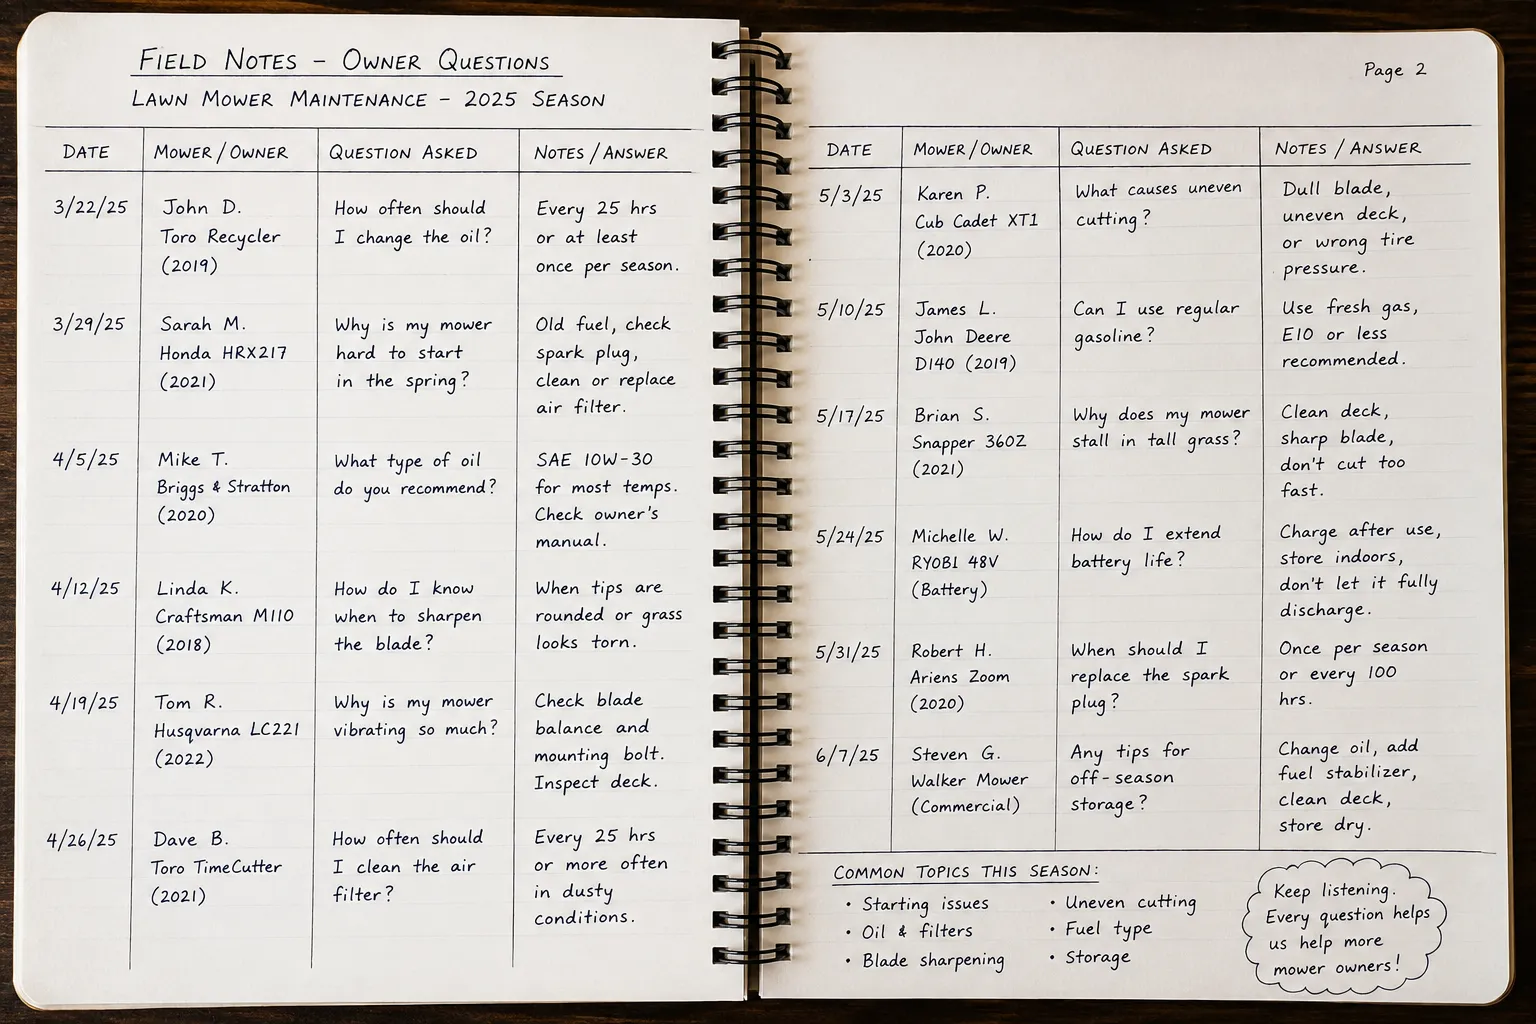 FIELD NOTES – OWNER QUESTIONS
LAWN MOWER MAINTENANCE – 2025 SEASON
DATE
MOWER / OWNER
QUESTION ASKED
NOTES / ANSWER
3/22/25
John D.
Toro Recycler
(2019)
How often should
I change the oil?
Every 25 hrs
or at least
once per season.
3/29/25
Sarah M.
Honda HRX217
(2021)
Why is my mower
hard to start
in the spring?
Old fuel, check
spark plug,
clean or replace
air filter.
4/5/25
Mike T.
Briggs & Stratton
(2020)
What type of oil
do you recommend?
SAE 10W-30
for most temps.
Check owner's
manual.
4/12/25
Linda K.
Craftsman M110
(2018)
How do I know
when to sharpen
the blade?
When tips are
rounded or grass
looks torn.
4/19/25
Tom R.
Husqvarna LC221
(2022)
Why is my mower
vibrating so much?
Check blade
balance and
mounting bolt.
Inspect deck.
4/26/25
Dave B.
Toro TimeCutter
(2021)
How often should
I clean the air
filter?
Every 25 hrs
or more often
in dusty
conditions.
Page 2
DATE
MOWER / OWNER
QUESTION ASKED
NOTES / ANSWER
5/3/25
Karen P.
Cub Cadet XT1
(2020)
What causes uneven
cutting?
Dull blade,
uneven deck,
or wrong tire
pressure.
5/10/25
James L.
John Deere
D140 (2019)
Can I use regular
gasoline?
Use fresh gas,
E10 or less
recommended.
5/17/25
Brian S.
Snapper 360Z
(2021)
Why does my mower
stall in tall grass?
Clean deck,
sharp blade,
don't cut too
fast.
5/24/25
Michelle W.
RYOBI 48V
(Battery)
How do I extend
battery life?
Charge after use,
store indoors,
don't let it fully
discharge.
5/31/25
Robert H.
Ariens Zoom
(2020)
When should I
replace the spark
plug?
Once per season
or every 100
hrs.
6/7/25
Steven G.
Walker Mower
(Commercial)
Any tips for
off-season
storage?
Change oil, add
fuel stabilizer,
clean deck,
store dry.
COMMON TOPICS THIS SEASON:
• Starting issues
• Oil & filters
• Blade sharpening
• Uneven cutting
• Fuel type
• Storage
Keep listening.
Every question helps
us help more
mower owners!